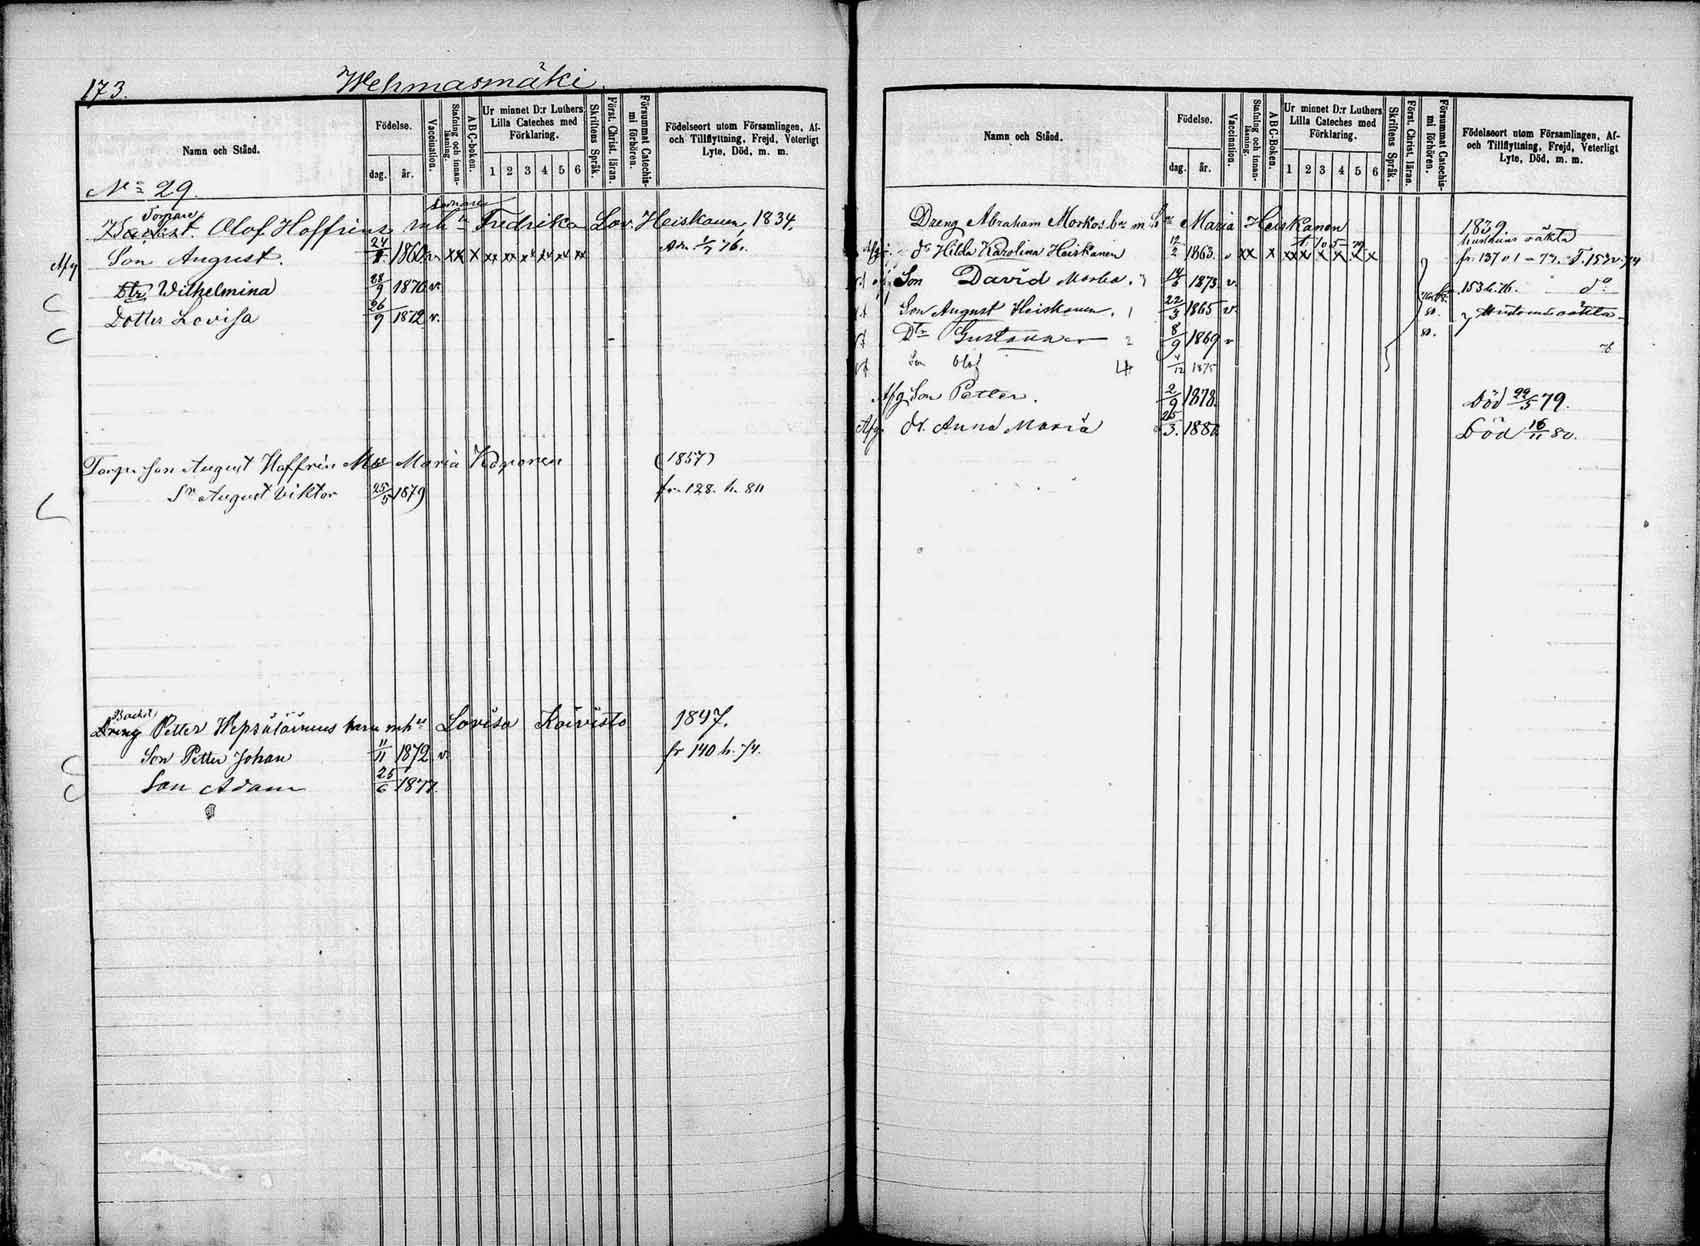 173.
Wehmasmäki.
Namn och Stånd.
Födelse.
dag. år.
Vaccination.
Stafning och innanläsning.
ABC-boken.
Ur minnet D:r Luthers Lilla Cateches med Förklaring.
1 2 3 4 5 6
Skriftens Språk.
Först. Christ. läran.
Försummat Catechismi förhören.
Födelseort utom Församlingen, Af- och Tillflyttning, Frejd, Veterligt Lyte, Död, m. m.
No 29.
Torpare
Olof Hoffrins mh Fredrika Lov. Heiskanen, 1834.
Afg Son August. 24 1860 v xx x xx xx x x xx xx xx 76.
Dtr Wilhelmina 28/9 1870 v.
Dotter Lovisa 26/9 1872 v.
Torp. son August Hoffrén M Maria Koponen (1857)
Sn August Viktor 25/5 1879 fr. 128. h. 80
Backst.
Dreng Petter Hepsäläinens barn mh Lovisa Koivisto 1847.
Son Petter Johan 11/11 1872 v. fr 140 h. 74.
Son Adam 25/6 1877
Namn och Stånd.
Födelse.
dag. år.
Vaccination.
Stafning och innanläsning.
ABC-boken.
Ur minnet D:r Luthers Lilla Cateches med Förklaring.
1 2 3 4 5 6
Skriftens Språk.
Först. Christ. läran.
Försummat Catechismi förhören.
Födelseort utom Församlingen, Af- och Tillflyttning, Frejd, Veterligt Lyte, Död, m. m.
Dreng Abraham Morkos bn m Maria Heiskanen 1839.
Hilda Karolina Heiskanen 12/2 1863. xx x xx xx x x x x
Son David 14 1873. v. 153 h. 76. do
Son August Heiskanen. 22/3 1865 v.
Dtr Gustava 8/9 1869 v
Son Olof 12 1875
Afg Son Petter. 2/9 1878. Död 22/5 79.
Afg. dr. Anna Maria 25/3. 1880. Död 16/11 80.